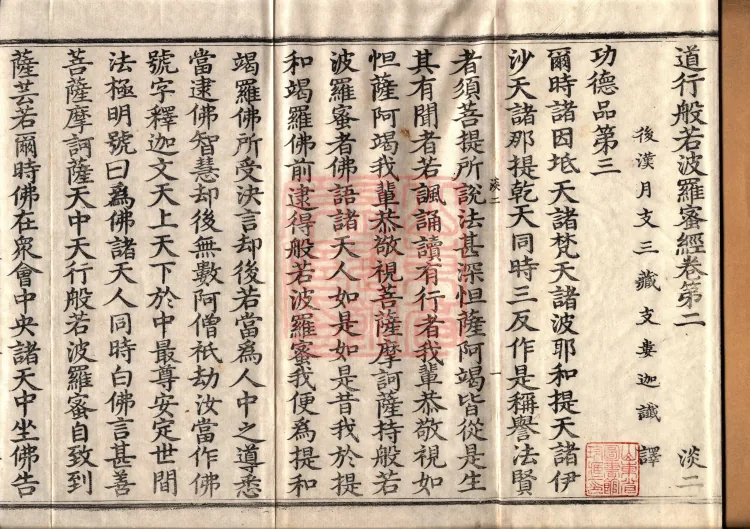 道行般若波羅蜜經卷第二 淡二
後漢月支三藏支婁迦讖譯
功德品第三
爾時諸因坻天諸梵天諸波耶和提天諸伊
沙天諸那提乾天同時三反作是稱譽法賢
者須菩提所說法甚深怛薩阿竭皆從是生
其有聞者若諷誦讀有行者我輩恭敬視如
怛薩阿竭我輩恭敬視菩薩摩訶薩持般若
波羅蜜者佛語諸天人如是如是昔我於提
和竭羅佛前逮得般若波羅蜜我便為提和
竭羅佛所受決言却後若當為人中之導悉
當逮佛智慧却後無數阿僧祇劫汝當作佛
號字釋迦文天上天下於中最尊安定世間
法極明號曰為佛諸天人同時白佛言甚善
菩薩摩訶薩天中天行般若波羅蜜自致到
薩芸若爾時佛在眾會中央諸天中坐佛告
淡二 一